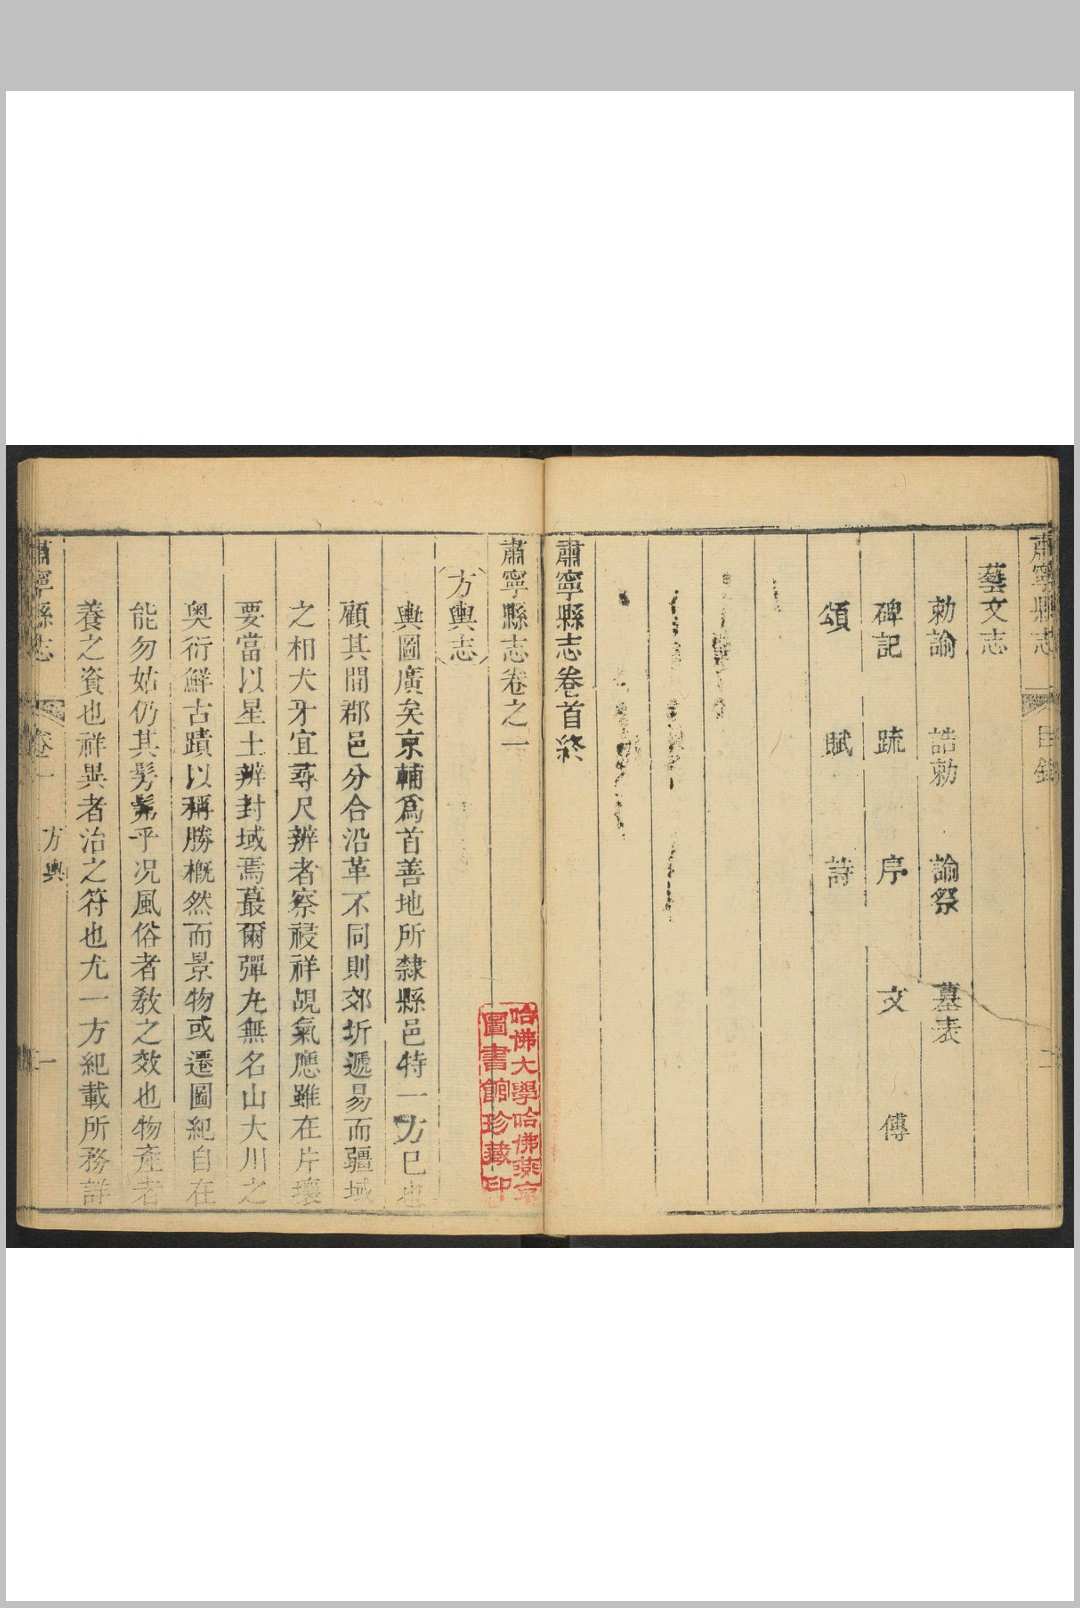 肅寧縣志
目錄
藝文志
勅諭 誥勅 諭祭 墓表
碑記 疏 序 文 傳
頌 賦 詩
肅寧縣志卷首終
肅寧縣志卷之一
方輿志
輿圖廣矣京輔爲首善地所隸縣邑特一方巳也
顧其間郡邑分合沿革不同則郊圻遞易而疆域
之相犬牙宜尋尺辨者察祲祥覘氣應雖在片壤
要當以星土辨封域焉蕞爾彈丸無名山大川之
奥衍鮮古蹟以稱勝概然而景物或遷圖紀自在
能勿姑仍其髣髴乎况風俗者敎之效也物產者
養之資也祥異者治之符也尤一方紀載所務詳
肅寧縣志
卷一
方輿
一
哈佛大學哈佛燕京
圖書館珍藏印